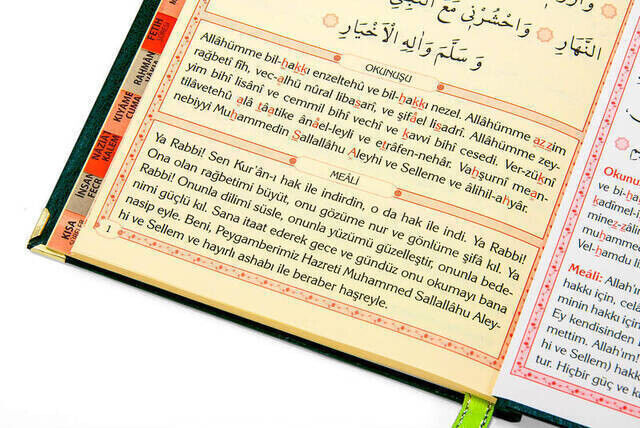 النَّهَارِ وَاحْشُرْنِي مَعَ النَّبِيِّ
وَسَلَّمَ وَاٰلِهِ الْاَخْيَارِ
OKUNUŞU
Allâhümme bil-hakkı enzeltehû ve bil-hakkı nezel. Allâhümme azzim
rağbetî fîh, vec-alhü nûral libasarî, ve şifâel lisadrî. Allâhümme zey-
yim bihî lisânî ve cemmil bihî vechî ve kavvi bihî cesedî. Ver-züknî
tilâvetehû alâ tâatike ânâel-leyli ve etrâfen-nehâr. Vahşurnî mean-
nebiyyi Muhammedin Sallallâhu Aleyhi ve Selleme ve âlihil-ahyâr.
MEÂLİ
Ya Rabbi! Sen Kur'ân-ı hak ile indirdin, o da hak ile indi. Ya Rabbi!
Ona olan rağbetimi büyüt, onu gözüme nur ve gönlüme şifâ kıl. Ya
Rabbi! Onunla dilimi süsle, onunla yüzümü güzelleştir, onunla bede-
nimi güçlü kıl. Sana itaat ederek gece ve gündüz onu okumayı bana
nasip eyle. Beni, Peygamberimiz Hazreti Muhammed Sallallâhu Aley-
hi ve Sellem ve hayırlı ashabı ile beraber haşreyle.
1
FETİH
RAHMAN
KIYAME
CUMA
NAZİAT
KALEM
İNSAN
FECR
KISA
Okunu
ve bi-ha
kadîmel
minez-zâli
muhamm
Vel-hamdu li
Meâli: Allah'ım
hakkı için, celâ
minin hakkı için
Ey kendisinden
mettim. Allah'ım!
hi ve Sellem) hakk
tur. Hiçbir güç ve k